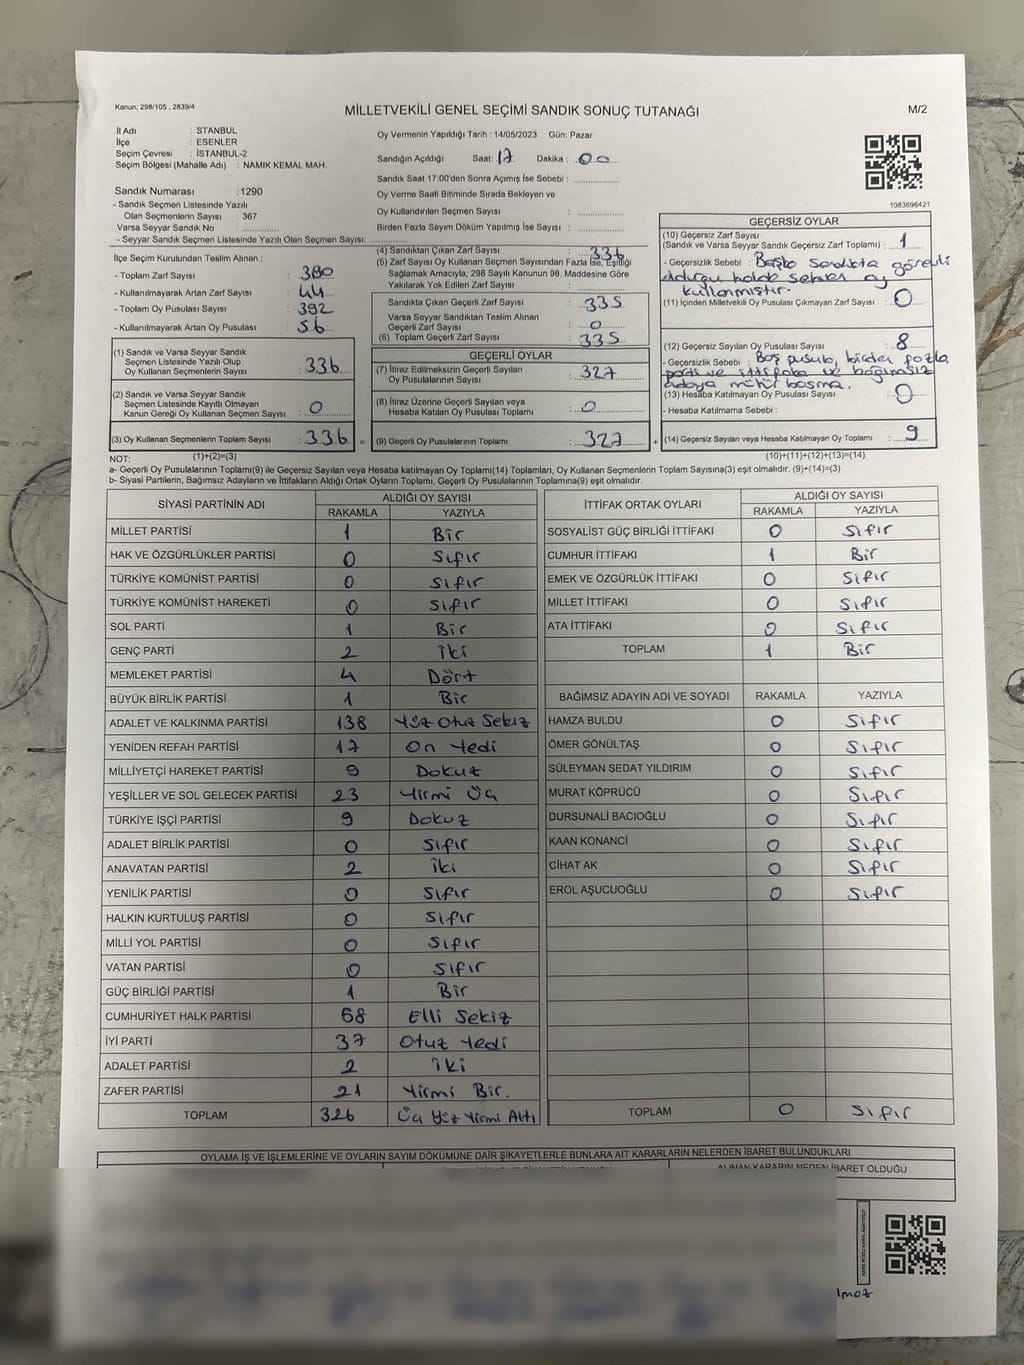 Kanun; 298/105 , 2839/4
MİLLETVEKİLİ GENEL SEÇİMİ SANDIK SONUÇ TUTANAĞI
M/2
İl Adı : STANBUL
İlçe : ESENLER
Seçim Çevresi : İSTANBUL-2
Seçim Bölgesi (Mahalle Adı) : NAMIK KEMAL MAH.
Sandık Numarası : 1290
- Sandık Seçmen Listesinde Yazılı
Olan Seçmenlerin Sayısı : 367
Varsa Seyyar Sandık No :
- Seyyar Sandık Seçmen Listesinde Yazılı Olan Seçmen Sayısı:
Oy Vermenin Yapıldığı Tarih : 14/05/2023 Gün: Pazar
Sandığın Açıldığı Saat: 17 Dakika : 00
Sandık Saat 17:00'den Sonra Açımış İse Sebebi :
Oy Verme Saati Bitiminde Sırada Bekleyen ve
Oy Kullandırılan Seçmen Sayısı :
Birden Fazla Sayım Döküm Yapılmış İse Sayısı :
1083696421
İlçe Seçim Kurulundan Teslim Alınan ;
- Toplam Zarf Sayısı : 380
- Kullanılmayarak Artan Zarf Sayısı : 44
- Toplam Oy Pusulası Sayısı : 392
- Kullanılmayarak Artan Oy Pusulası : 56
(1) Sandık ve Varsa Seyyar Sandık
Seçmen Listesinde Yazılı Olup
Oy Kullanan Seçmen Sayısı : 336
(2) Sandık ve Varsa Seyyar Sandık
Seçmen Listesinde Kayıtlı Olmayan
Kanun Gereği Oy Kullanan Seçmen Sayısı : 0
(3) Oy Kullanan Seçmenlerin Toplam Sayısı : 336
(4) Sandıktan Çıkan Zarf Sayısı : 336
(5) Zarf Sayısı Oy Kullanan Seçmen Sayısından Fazla İse, Eşitliği
Sağlamak Amacıyla; 298 Sayılı Kanunun 98. Maddesine Göre
Yakılarak Yok Edilen Zarf Sayısı :
Sandıkta Çıkan Geçerli Zarf Sayısı : 335
Varsa Seyyar Sandıktan Teslim Alınan
Geçerli Zarf Sayısı : 0
(6) Toplam Geçerli Zarf Sayısı : 335
GEÇERLİ OYLAR
(7) İtiraz Edilmeksizin Geçerli Sayılan
Oy Pusulalarının Sayısı : 327
(8) İtiraz Üzerine Geçerli Sayılan veya
Hesaba Katılan Oy Pusulası Toplamı : 0
= (9) Geçerli Oy Pusulalarının Toplamı : 327
GEÇERSİZ OYLAR
(10) Geçersiz Zarf Sayısı
(Sandık ve Varsa Seyyar Sandık Geçersiz Zarf Toplamı) : 1
- Geçersizlik Sebebi : Başka sandıkta görevli
olduğu halde sehven oy
kullanmıştır.
(11) İçinden Milletvekili Oy Pusulası Çıkmayan Zarf Sayısı : 0
(12) Geçersiz Sayılan Oy Pusulası Sayısı : 8
- Geçersizlik Sebebi : Boş pusula, birden fazla
parti ve ittifaka ve bağımsız
adaya mühür basma.
(13) Hesaba Katılmayan Oy Pusulası Sayısı : 0
- Hesaba Katılmama Sebebi :
+ (14) Geçersiz Sayılan veya Hesaba Katılmayan Oy Toplamı : 9
NOT: (1)+(2)=(3) (10)+(11)+(12)+(13)=(14)
a- Geçerli Oy Pusulalarının Toplamı(9) ile Geçersiz Sayılan veya Hesaba katılmayan Oy Toplamı(14) Toplamları, Oy Kullanan Seçmenlerin Toplam Sayısına(3) eşit olmalıdır. (9)+(14)=(3)
b- Siyasi Partilerin, Bağımsız Adayların ve İttifakların Aldığı Ortak Oyların Toplamı, Geçerli Oy Pusulalarının Toplamına(9) eşit olmalıdır.
SİYASİ PARTİNİN ADI ALDIĞI OY SAYISI
RAKAMLA YAZIYLA
MİLLET PARTİSİ 1 Bir
HAK VE ÖZGÜRLÜKLER PARTİSİ 0 Sıfır
TÜRKİYE KOMÜNİST PARTİSİ 0 Sıfır
TÜRKİYE KOMÜNİST HAREKETİ 0 Sıfır
SOL PARTİ 1 Bir
GENÇ PARTİ 2 İki
MEMLEKET PARTİSİ 4 Dört
BÜYÜK BİRLİK PARTİSİ 1 Bir
ADALET VE KALKINMA PARTİSİ 138 Yüz Otuz Sekiz
YENİDEN REFAH PARTİSİ 17 On Yedi
MİLLİYETÇİ HAREKET PARTİSİ 9 Dokuz
YEŞİLLER VE SOL GELECEK PARTİSİ 23 Yirmi Üç
TÜRKİYE İŞÇİ PARTİSİ 9 Dokuz
ADALET BİRLİK PARTİSİ 0 Sıfır
ANAVATAN PARTİSİ 2 İki
YENİLİK PARTİSİ 0 Sıfır
HALKIN KURTULUŞ PARTİSİ 0 Sıfır
MİLLİ YOL PARTİSİ 0 Sıfır
VATAN PARTİSİ 0 Sıfır
GÜÇ BİRLİĞİ PARTİSİ 1 Bir
CUMHURİYET HALK PARTİSİ 58 Elli Sekiz
İYİ PARTİ 37 Otuz Yedi
ADALET PARTİSİ 2 İki
ZAFER PARTİSİ 21 Yirmi Bir.
TOPLAM 326 Üç Yüz Yirmi Altı
İTTİFAK ORTAK OYLARI ALDIĞI OY SAYISI
RAKAMLA YAZIYLA
SOSYALİST GÜÇ BİRLİĞİ İTTİFAKI 0 Sıfır
CUMHUR İTTİFAKI 1 Bir
EMEK VE ÖZGÜRLÜK İTTİFAKI 0 Sıfır
MİLLET İTTİFAKI 0 Sıfır
ATA İTTİFAKI 0 Sıfır
TOPLAM 1 Bir
BAĞIMSIZ ADAYIN ADI VE SOYADI RAKAMLA YAZIYLA
HAMZA BULDU 0 Sıfır
ÖMER GÖNÜLTAŞ 0 Sıfır
SÜLEYMAN SEDAT YILDIRIM 0 Sıfır
MURAT KÖPRÜCÜ 0 Sıfır
DURSUNALİ BACIOĞLU 0 Sıfır
KAAN KONANCİ 0 Sıfır
CİHAT AK 0 Sıfır
EROL AŞUCUOĞLU 0 Sıfır
TOPLAM 0 Sıfır
OYLAMA İŞ VE İŞLEMLERİNE VE OYLARIN SAYIM DÖKÜMÜNE DAİR ŞİKAYETLERLE BUNLARA AİT KARARLARIN NELERDEN İBARET BULUNDUKLARI
ALINAN KARARIN NEDEN İBARET OLDUĞU